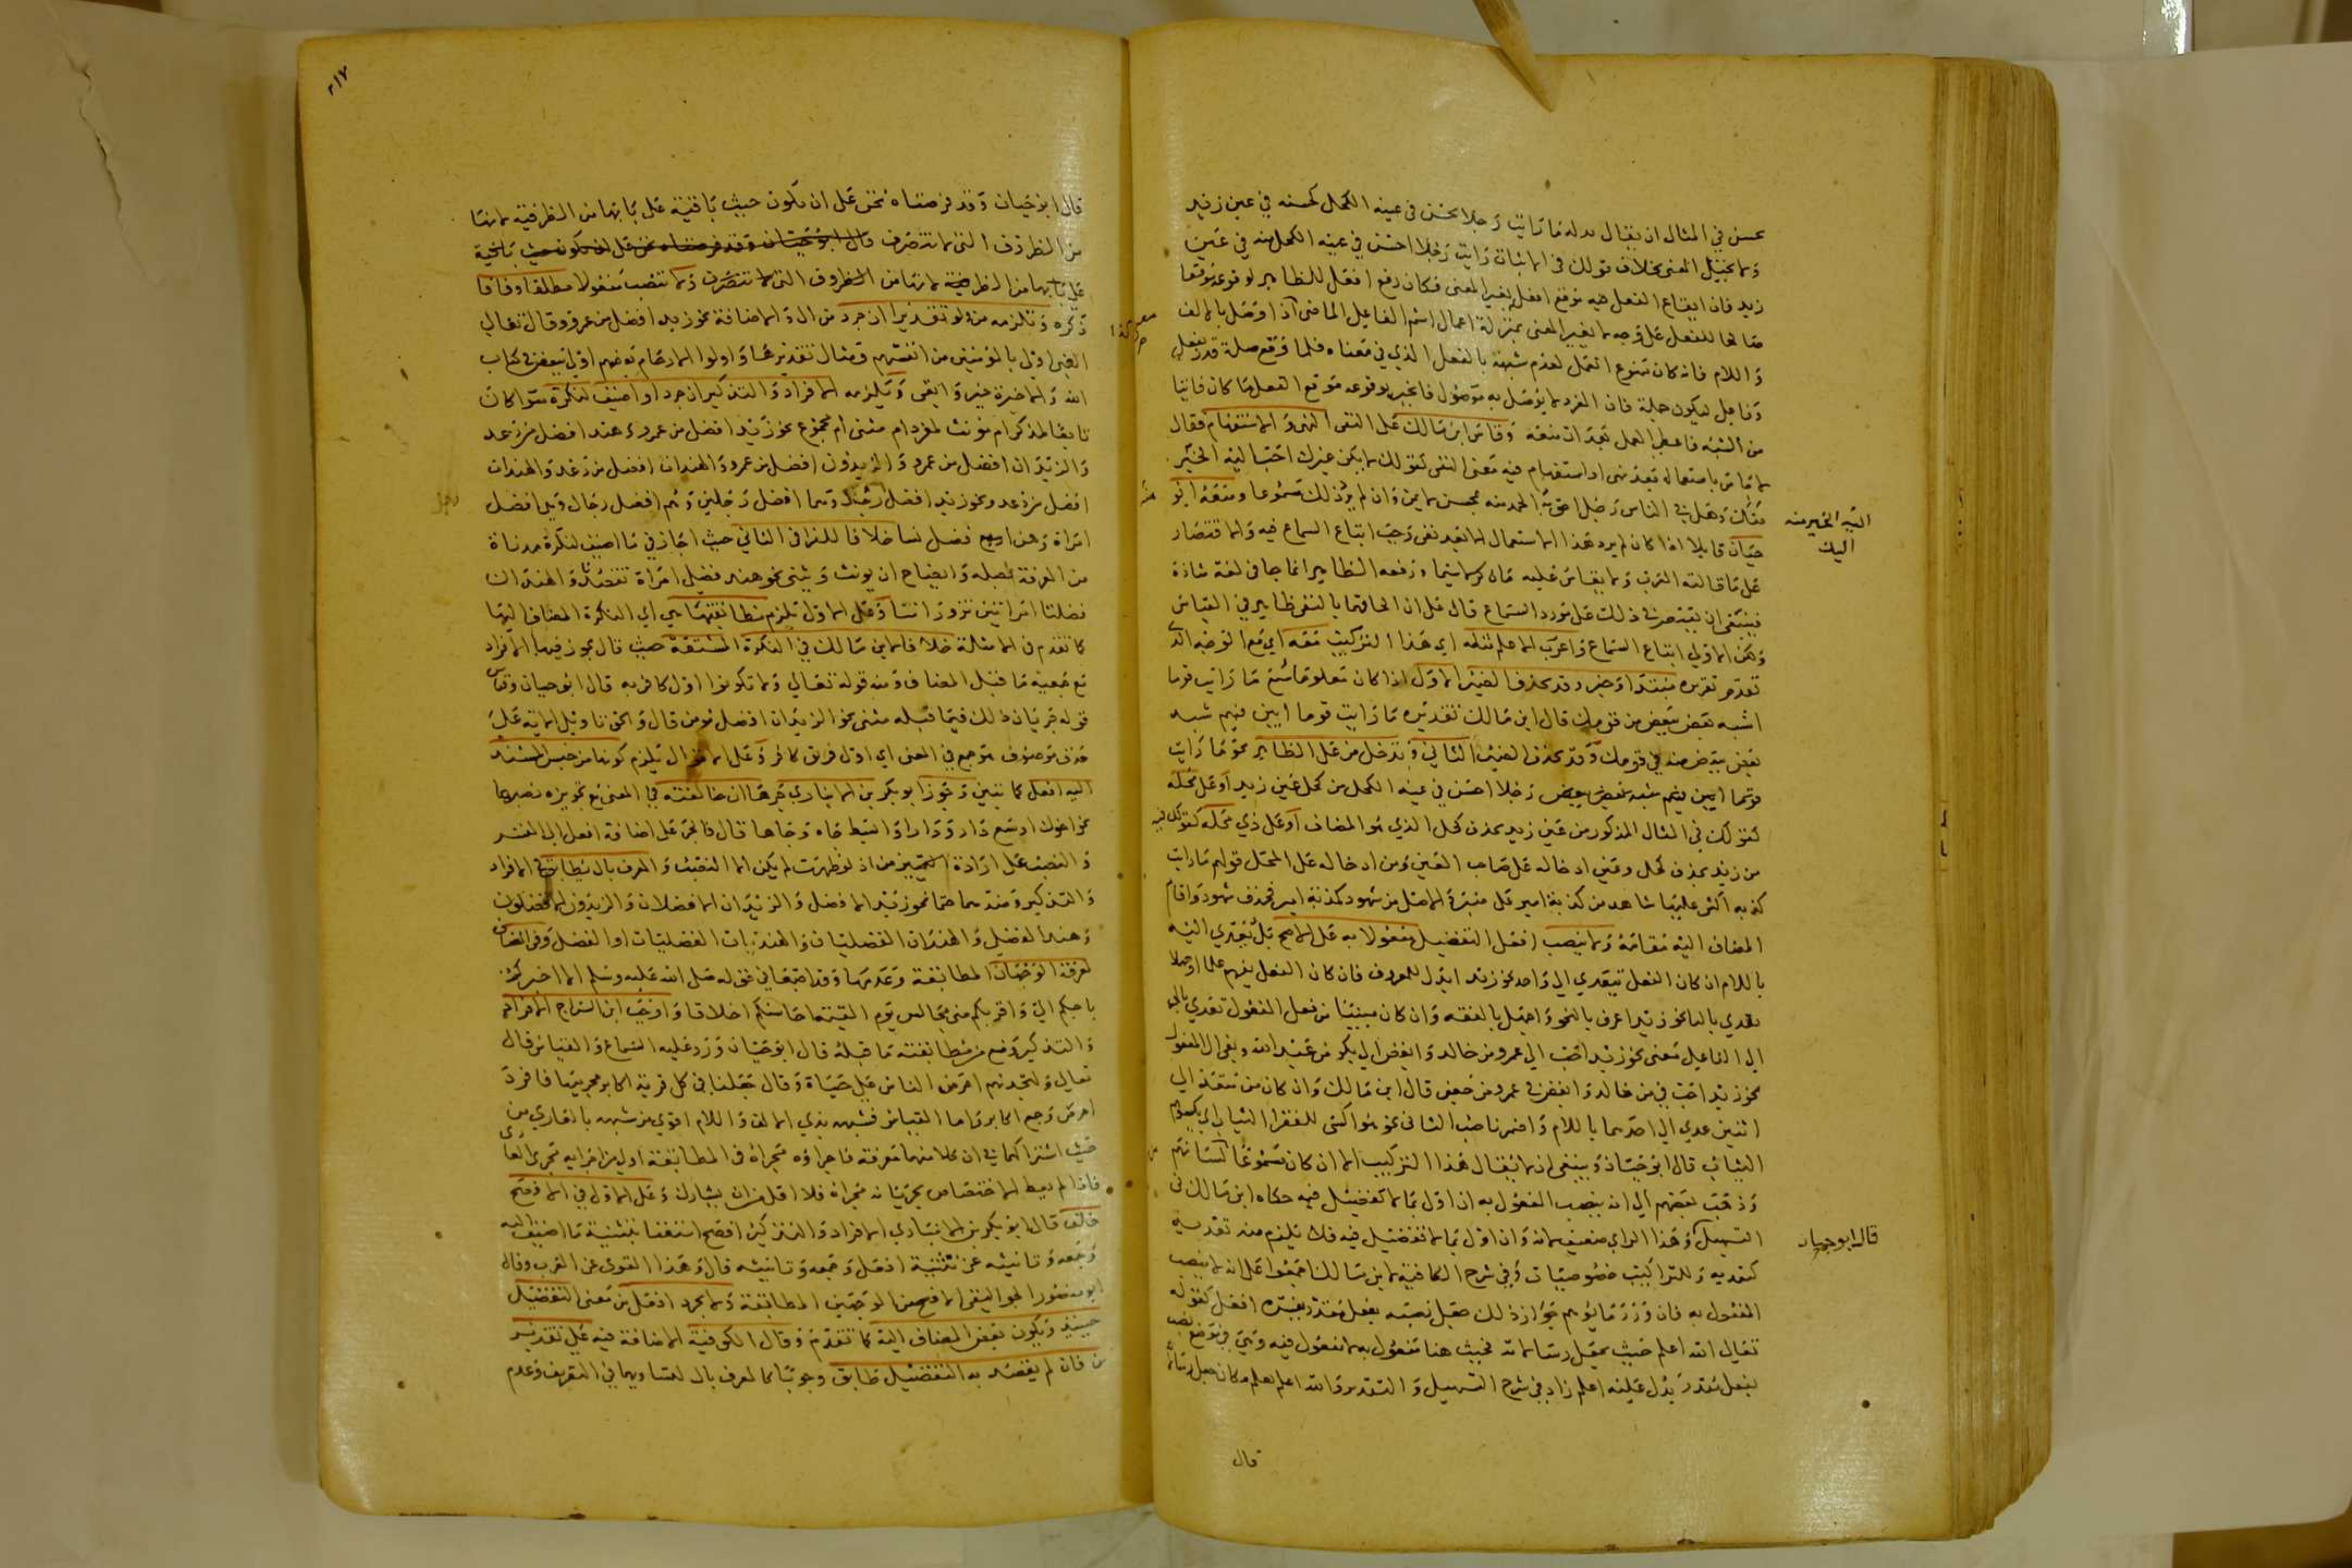 يحسن في المثال ان يقال بدله ما رايت رجلا يحسن في عينه الكحل كحسنه في عين زيد
ولا يختل المعنى بخلاف قولك في الاثبات رايت رجلا احسن في عينه الكحل منه في عين
زيد فان ايقاع الفعل فيه موقع افعل يغير المعنى فكان رفع افعل للظاهر لوقوعه موقعا
صالحا للفعل على وجه لا يغير المعنى بمنزلة اعمال اسم الفاعل الماضي اذا وصل بالالف
واللام فانه كان ممنوع العمل لعدم شبهه بالفعل الذي في معناه فلما وقع صلة قدر بفعل
وفاعل ليكون جملة فان المفرد لا يوصل به موصول فانجبر بوقوعه موقع الفعل ما كان فائتا
من الشبه فاعطي العمل بعد ان منعه وقاس ابن مالك على النفي النهي والاستفهام فقال
لا باس باستعماله بعد نهي او استفهام فيه معنى النفي كقولك لا يكن غيرك احب اليه الخير
منك وهل في الناس رجل احق به الحمد منه بمحسن لا يمن وان لم يرد ذلك مسموعا ومنعه ابو
اليه الخير منه
اليك
حيان قايلا اذا كان لم يرد هذا الاستعمال الا بعد نفي وجب اتباع السماع فيه والاقتصار
على ما قالته العرب ولا يقاس عليه ما لا سيما ورفعه الظاهر انما جا في لغة شاذة
فينبغي ان يقتصر في ذلك على مورد السماع قال على ان الحاقهما بالنفي ظاهر في القياس
ولكن الاولى اتباع السماع واعرب الاعلم مثله اي هذا التركيب معه اي مع الوجه الذي
تقدم تقريره مبتدا وخبر وقد يحذف الضمير الاول اذا كان معلوما سمع ما رايت قوما
اشبه بعض ببعض من قومك قال ابن مالك تقديره ما رايت قوما ابين فيهم شبه
بعض ببعض منه في قومك وقد يحذف الضمير الثاني وتدخل من على الظاهر نحو ما رايت
قوما ابين فيهم شبه بعض ببعض رجلا احسن في عينه الكحل من كحل عين زيد او على محله
كقولك في المثال المذكور من عين زيد بحذف كحل الذي هو المضاف او على ذي محله كقولك فيه
من زيد بحذف كحل وعين ادخاله على صاحب العين ومن ادخاله على المحل قولهم ما رايت
كذبه اكثر عليها شاهد من كذبة امير على منبره الاصل من شهود كذبة امير فحذف شهود واقام
المضاف اليه مقامه ولا ينصب افعل التفضيل مفعولا به على الاصح بل يتعدى اليه
باللام ان كان الفعل يتعدى الى واحد نحو زيد ابذل للمعروف فان كان الفعل يفهم علما او جهلا
تعدى بالبا نحو زيد اعرف بالنحو واجهل بالفقه وان كان مبنيا من فعل المفعول تعدى بالى
الى الفاعل معنى نحو زيد احب الى عمرو من خالد وابغض الى بكر من عبد الله وبفي الى المفعول
نحو زيد احب في من خالد وابغض في عمرو من جعفر قال ابن مالك وان كان من متعد الى
اثنين عدي الى احدهما باللام واضمر ناصب الثاني نحو هو اكسى للفقرا الثياب اي يكسوهم
الثياب قال ابو حيان وينبغي ان لا يقال هذا التركيب الا ان كان مسموعا
وذهب بعضهم الى انه ينصب المفعول به ان اول بما لا تفضيل فيه حكاه ابن مالك في
التسهيل وهذا الراي ضعيف لانه وان اول بما لا تفضيل فيه فلا يلزم منه تعديه
قال ابو حيان
كتعديه وللتراكيب خصوصيات وفي شرح الكافية لابن مالك اجمعوا على انه لا ينصب
المفعول به فان ورد ما يوهم جواز ذلك جعل نصبه بفعل مقدر يفسره افعل كقوله
تعالى الله اعلم حيث يجعل رسالاته فحيث هنا مفعول به لا مفعول فيه وهي في موضع نصب
بفعل مقدر يدل عليه اعلم زاد في شرح التسهيل والتقدير والله اعلم يعلم مكان جعل رسالاته
قال
٢١٧
قال ابو حيان وقد فرضناه نحن على ان تكون حيث باقية على بابها من الظرفية لانها
من الظروف التي لا تتصرف قال ابو حيان وقد فرضناه نحن على ان تكون حيث باقية
على بابها من الظرفية لانها من الظروف التي لا تتصرف ولا تنصب مفعولا مطلقا وفاقا
ذكره وتلزمه من ولو تقديرا ان جرد من ال والاضافة نحو زيد افضل من عمرو وقال تعالى
النبي اولى بالمومنين من انفسهم ومثال تقديرها واولوا الارحام بعضهم اولى ببعض في كتاب
الله والاخرة خير وابقى ويلزمه الافراد والتذكير ان جرد او اضيف لنكرة سوا كان
تابعا لمذكر ام مونث لمفرد ام مثنى ام مجموع نحو زيد افضل من عمرو وهند افضل من دعد
والزيدان افضل من عمرو والزيدون افضل من عمرو والهندان افضل من دعد والهندات
افضل من دعد ونحو زيد افضل رجل وهما افضل رجلين وهم افضل رجال وهي افضل
امراة وهن افضل نسا خلافا للفرا في الثاني حيث اجاز في ما اضيف لنكرة مدناة
من المعرفة بصلة وايضاح ان يونث ويثنى نحو هند فضلى امراة تقصدنا والهندان
فضليا امراتين تزوراننا وعلى الاول يلزم مطابقتها هي اي النكرة المضاف اليها
كما تقدم في الامثلة خلافا لابن مالك في النكرة المشتقة حيث قال يجوز فيها الافراد
مع جمعية ما قبل المضاف ومنه قوله تعالى ولا تكونوا اول كافر به قال ابو حيان وقياس
قوله جريان ذلك فيما قبله مثنى نحو الزيدان افضل مومن قال والحق تاويل الاية على
حذف موصوف هو جمع في المعنى اي اول فريق كافر وعلى الاقوال يلزم كونها من جنس المسند
اليه افعل كما تبين وجوز ابو بكر بن الانباري جرها ان خالفته في المعنى مع تجويزه نصبها
نحو اخوك اوسع دار ودارا وابسط جاه وجاها قال فالجر على اضافة افعل الى المفسر
والنصب على ارادة التمييز من اذ لو ظهرت لم يكن الا النصب والمعرف بال يطابق في الافراد
والتذكير وضدهما حتما نحو زيد الافضل والزيدان الافضلان والزيدون الافضلون
وهند الفضلى والهندان الفضليان والهندات الفضليات او الفضل وفي المضاف
لمعرفة الوجهان المطابقة وعدمها وقد اجتمعا في قوله صلى الله عليه وسلم الا اخبركم
باحبكم الي واقربكم مني مجالس يوم القيمة احاسنكم اخلاقا واوجب ابن السراج الافراد
والتذكير ومنع من مطابقته ما قبله قال ابو حيان ورد عليه السماع والقياس قال
تعالى ولتجدنهم احرص الناس على حياة وقال جعلنا في كل قرية اكابر مجرميها فافرد
احرص وجمع اكابر واما القياس فشبهه بذي الالف واللام اقوى من شبهه بالعاري من
حيث اشتراكهما في ان كلا منهما معرفة فاجراؤه مجراه في المطابقة اولى من اجرايه مجرى العاري
فاذا لم يعط الاختصاص بجريانه مجراه فلا اقل من ان يشارك وعلى الاول في الافصح
خلف قال ابو بكر بن الانباري الافراد والتذكير افصح استغنا بتثنية ما اضيف اليه
وجمعه وتانيثه عن تثنية افعل وجمعه وتانيثه قال وهذا القول عن العرب وقال
ابو منصور الجواليقي الافصح من الوجهين المطابقة ولا يجرد افعل من معنى التفضيل
حينيذ ويكون بعض المضاف اليه كما تقدم وقال الكوفية الاضافة فيه على تقدير
من فان لم يقصد به التفضيل طابق وجوبا كالمعرف بال لتساويهما في التعريف وعدم